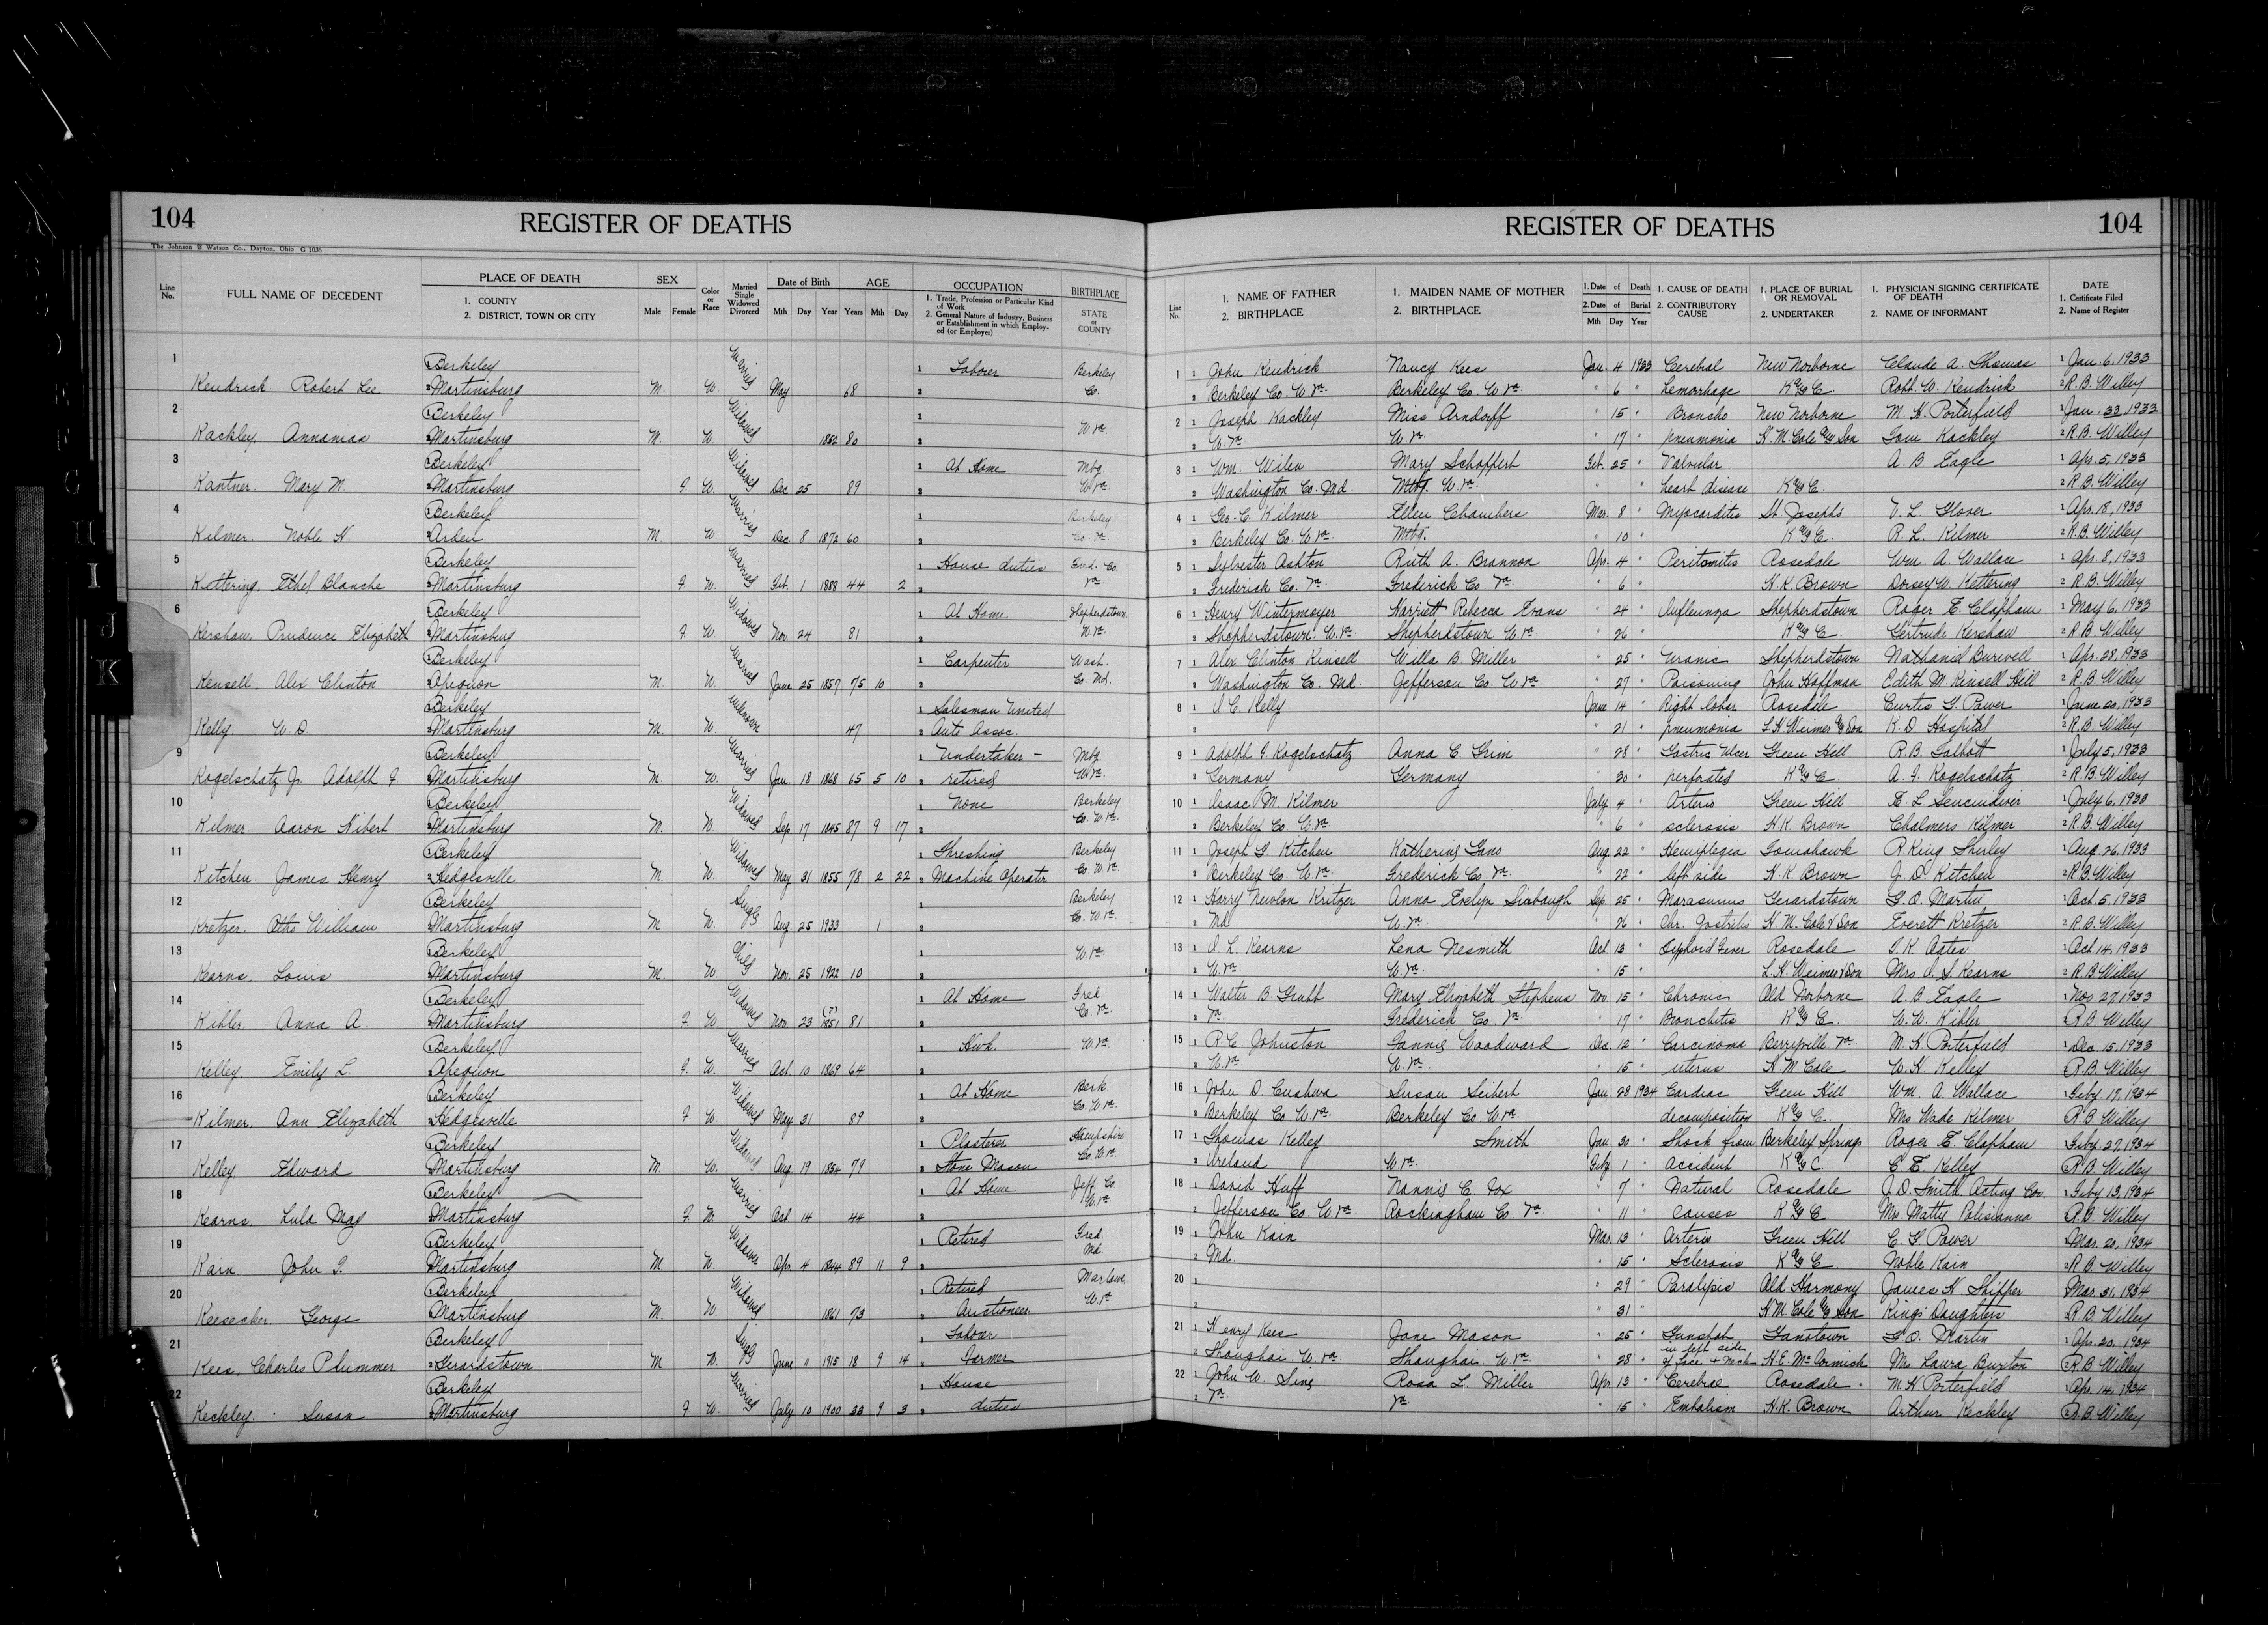 104
REGISTER OF DEATHS
The Johnson & Watson Co., Dayton, Ohio G 1036
Line No.
FULL NAME OF DECEDENT
PLACE OF DEATH
1. COUNTY
2. DISTRICT, TOWN OR CITY
SEX
Male Female
Color or Race
Married Single Widowed Divorced
Date of Birth
Mth Day Year
AGE
Years Mth Day
OCCUPATION
1. Trade, Profession or Particular Kind of Work
2. General Nature of Industry, Business or Establishment in which Employed (or Employer)
BIRTHPLACE
STATE or COUNTY
1 Berkeley Married 1 Laborer Berkeley
Kendrick Robert Lee 2 Martinsburg M. W. May 68 2 Co.
2 Berkeley Widowed 1 W. Va.
Kackley, Annanias 2 Martinsburg M. W. 1852 80 2
3 Berkeley Widowed 1 At Home Mbg.
Kantner. Mary M. 2 Martinsburg F. W. Dec. 25 89 2 W. Va.
4 Berkeley Married 1 Berkeley
Kilmer. Noble H 2 Arden M. W. Dec. 8 1872 60 2 Co. Va.
5 Berkeley Married 1 House duties Fred. Co.
Kettering, Ethel Blanche 2 Martinsburg F W. Feb. 1 1888 44 2 2 Va
6 Berkeley Widowed 1 At Home Shepherdstown
Kershaw, Prudence Elizabeth 2 Martinsburg F. W. Nov. 24 81 2 W. Va.
7 Berkeley Married 1 Carpenter Wash.
Kensell. Alex Clinton 2 Opequon M. W. June 25 1857 75 10 2 Co. Md.
8 Berkeley Unknown 1 Salesman United
Kelly. W. D 2 Martinsburg M. W 47 2 Auto Assoc.
9 Berkeley Married 1 Undertaker - Mbg.
Kogelschatz Jr. Adolph F. 2 Martinsburg M. W. Jan. 18 1868 65 5 10 2 retired W. Va.
10 Berkeley Widowed 1 None Berkeley
Kilmer Aaron Hibert 2 Martinsburg M. W. Sep. 17 1845 87 9 17 2 Co. W. Va.
11 Berkeley Widowed 1 Threshing Berkeley
Kitchen. James Henry 2 Hedgesville M. W. May 31 1855 78 2 22 2 Machine Operator Co. W. Va.
12 Berkeley Single 1 Berkeley
Kretzer. Otho William Martinsburg M W. Aug. 25 1933 1 2 Co. W. Va.
13 Berkeley 1 W. Va.
Kearns. Louis 2 Martinsburg M. W. Nov. 25 1922 10 2
14 Berkeley Widowed 1 At Home Fred
Kibler. Anna A. 2 Martinsburg F. W. Nov. 23 (?) 1851 81 2 Co. Va.
15 Berkeley Married 1 Hwk. W. Va.
Kelley. Emily L Opequon F. W. Oct 10 1869 64 2
16 Berkeley Widowed 1 At Home Berk.
Kilmer, Ann Elizabeth 2 Hedgesville F W. May 31 89 2 Co. W. Va.
17 Berkeley Widowed 1 Plasterer Hampshire
Kelley Edward 2 Martinsburg M. W. Aug 19 1854 79 2 Stone Mason Co W. Va.
18 Berkeley Married 1 At Home Jeff. Co
Kearns. Lula May 2 Martinsburg F. W. Oct 14 44 2 W. Va.
19 Berkeley Widower 1 Retired Fred.
Kain John T. 2 Martinsburg M W. Apr. 4 1844 89 11 9 2 Md.
20 Berkeley Widowed 1 Retired Marlowe
Keesecker. George Martinsburg M. W. 1861 73 2 Auctioneer W. Va
21 Berkeley Single 1 Laborer
Kees, Charles Plummer 2 Gerardstown M W. June 11 1915 18 9 14 2 farmer
22 Berkeley Married 1 House
Keckley. Susan 2 Martinsburg F W. July 10 1900 33 9 3 2 duties
REGISTER OF DEATHS
104
Line No.
1. NAME OF FATHER
2. BIRTHPLACE
1. MAIDEN NAME OF MOTHER
2. BIRTHPLACE
1. Date of Death
2. Date of Burial
Mth Day Year
1. CAUSE OF DEATH
2. CONTRIBUTORY CAUSE
1. PLACE OF BURIAL OR REMOVAL
2. UNDERTAKER
1. PHYSICIAN SIGNING CERTIFICATE OF DEATH
2. NAME OF INFORMANT
DATE
1. Certificate Filed
2. Name of Register
1 1 John Kendrick Nancy Kees Jan. 4 1933 Cerebral New Norborne Claude A. Thomas 1 Jan. 6, 1933
2 Berkeley Co. W. Va. Berkeley Co. W. Va. " 6 " hemorhage K & C Robt. W. Kendrick 2 R. B. Willey
2 1 Joseph Kackley Miss Arndorff " 15 " Broncho New Norborne M. H. Porterfield 1 Jan. 23, 1933
2 W. Va W. Va. " 17 " pneumonia H. M. Cole & Son Tom Kackley 2 R. B. Willey
3 1 Wm. Wilen Mary Schoppert Feb. 25 " Valvular A. B Eagle 1 Apr. 5, 1933
2 Washington Co. Md. Mtbg. W. Va. " " heart disease K & C. 2 R. B. Willey
4 1 Geo. C. Kilmer Ellen Chambers Mar. 8 " Myocarditis St. Joseph's V. L. Glover 1 Apr. 18, 1933
2 Berkeley Co. W. Va. Mtbg. " 10 " K & C. R. L. Kilmer 2 R. B. Willey
5 1 Sylvester Ashton Ruth A. Brannon Apr. 4 " Peritonitis Rosedale Wm. A. Wallace 1 Apr. 8, 1933
2 Frederick Co. Va. Frederick Co. Va. " 6 " H. K. Brown Dorsey W. Kettering 2 R. B. Willey
6 1 Henry Wintermoyer Harriett Rebecca Evans " 24 " Influenza Shepherdstown Roger E. Clapham 1 May 6, 1933
2 Shepherdstown W. Va. Shepherdstown W. Va. " 26 " K & C Gertrude Kershaw 2 R. B. Willey
7 1 Alex Clinton Kinsell Willa B. Miller " 25 " Uramic Shepherdstown Nathaniel Burwell 1 Apr. 28, 1933
2 Washington Co. Md. Jefferson Co. W. Va. " 27 " Poisoning John Hoffman Edith M. Kinsell Hill 2 R. B. Willey
8 1 I. C. Kelly June 14 " Right lobar Rosedale Curtis G. Power 1 June 20, 1933
2 " 21 " pneumonia L. H. Weimer & Son K. D. Hospital 2 R. B. Willey
9 1 Adolph F. Kogelschatz Anna C. Grim " 28 " Gastric Ulcer Green Hill R. B. Talbott 1 July 5, 1933
2 Germany Germany " 30 " perforated K & C. A. F. Kogelschatz 2 R. B. Willey
10 1 Isaac M. Kilmer July 4 " Arterio Green Hill E. L. Sencindiver 1 July 6, 1933
2 Berkeley Co W. Va " 6 " sclerosis H. K. Brown Chalmers Kilmer 2 R. B. Willey
11 1 Joseph G. Kitchen Katherine Gano Aug. 22 " Hemiplegia Tomahawk R. King Shirley 1 Aug. 26, 1933
2 Berkeley Co. W. Va. Frederick Co. Va. " 22 " left side H. K. Brown J. D. Kitchen 2 R. B. Willey
12 1 Harry Newton Kritzer Anna Evelyn Sirbaugh Sep. 25 " Marasmus Gerardstown G. O. Martin 1 Oct. 5, 1933
2 Md W. Va. " 26 " Chr. Gastritis H. M. Cole & Son Everett Kretzer 2 R. B. Willey
13 1 I. L. Kearns Lena Nesmith Oct. 13 " Typhoid Fever Rosedale 1 Oct 14, 1933
2 W. Va W. Va. " 15 " L. H. Weimer & Son Mrs I. L. Kearns 2 R. B. Willey
14 1 Walter B Grubb Mary Elizabeth Stephens Nov. 15 " Chronic Old Norborne A. B. Eagle 1 Nov 27, 1933
2 Va. Frederick Co. Va. " 17 " Bronchitis K & C. W. W. Kibler 2 R. B. Willey
15 1 R. C. Johnston Fannie Woodward Dec. 12 " Carcinoma Berryville Va. M. H. Porterfield 1 Dec. 15, 1933
2 W. Va. W. Va. " 15 " uterus H. M. Cole W. H. Kelley 2 R. B. Willey
16 1 John D. Cushwa Susan Seibert Jan. 28 1934 Cardiac Green Hill Wm. A. Wallace 1 Feby 17, 1934
2 Berkeley Co. W. Va. Berkeley Co. W. Va. decomposition K & C. Mrs Wade Kilmer 2 R. B. Willey
17 1 Thomas Kelley Smith Jan. 30 " Shock from Berkeley Springs Roger E. Clapham Feby. 27, 1934
2 Ireland W. Va. Feby. 1 " accident K & C. C. E. Kelley 2 R. B. Willey
18 1 David Huff Nannie C. Fox " 7 " Natural Rosedale I. D. Smith Acting Cor. 1 Feby 13, 1934
2 Jefferson Co. W. Va. Rockingham Co. Va. " 11 " causes K & C Mrs. Matty 2 R. B. Willey
19 1 John Kain Mar. 13 " Arterio Green Hill C. G. Power Mar. 20, 1934
2 Md. " 15 " Sclerosis K & C Noble Kain 2 R. B. Willey
20 1 " 29 " Paralysis Old Harmony James H Shipper Mar. 31, 1934
2 " 31 " H. M. Cole & Son Kings Daughters 2 R. B. Willey
21 1 Henry Kees Jane Mason " 25 " Gunshot Ganotown G. O. Martin 1 Apr. 20, 1934
in left side
2 Shanghai W. Va. Shanghai W. Va. " 28 " of face + neck H. E. McCormick Mrs. Laura Burton 2 R. B. Willey
22 1 John W. Sine Rosa L. Miller Apr. 13 " Cerebral Rosedale M. H. Porterfield 1 Apr. 14, 1934
2 Va. Va " 15 " Embolism H. K. Brown Arthur Keckley 2 R. B. Willey
G
H
I
J
K
M